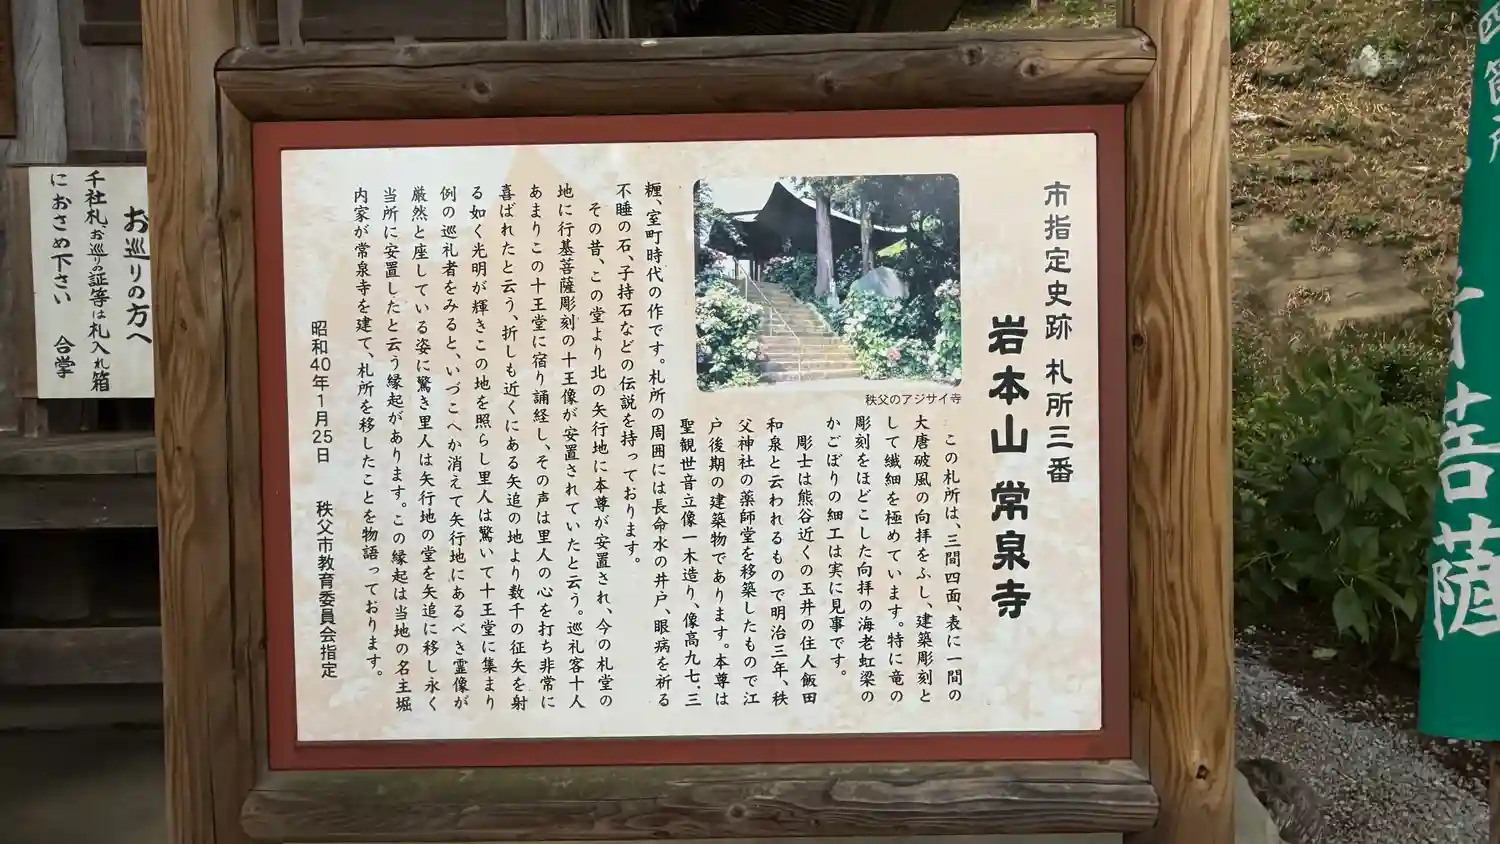 市指定史跡 札所三番
岩本山 常泉寺
秩父のアジサイ寺
この札所は、三間四面、表に一間の
大唐破風の向拝をふし、建築彫刻と
して繊細を極めています。特に竜の
彫刻をほどこした向拝の海老虹梁の
かごぼりの細工は実に見事です。
彫士は熊谷近くの玉井の住人飯田
和泉と云われるもので明治三年、秩
父神社の薬師堂を移築したもので江
戸後期の建築物であります。本尊は
聖観世音立像一木造り、像高九七.三
糎、室町時代の作です。札所の周囲には長命水の井戸、眼病を祈る
不睡の石、子持石などの伝説を持っております。
その昔、この堂より北の矢行地に本尊が安置され、今の札堂の
地に行基菩薩彫刻の十王像が安置されていたと云う。巡礼客十人
あまりこの十王堂に宿り誦経し、その声は里人の心を打ち非常に
喜ばれたと云う、折しも近くにある矢追の地より数千の征矢を射
る如く光明が輝きこの地を照らし里人は驚いて十王堂に集まり
例の巡礼者をみると、いづこへか消えて矢行地にあるべき霊像が
厳然と座している姿に驚き里人は矢行地の堂を矢追に移し永く
当所に安置したと云う縁起があります。この縁起は当地の名主堀
内家が常泉寺を建て、札所を移したことを物語っております。
昭和40年1月25日 秩父市教育委員会指定
お巡りの方へ
千社札、お巡りの証等は札入れ箱
におさめ下さい 合掌
菩薩